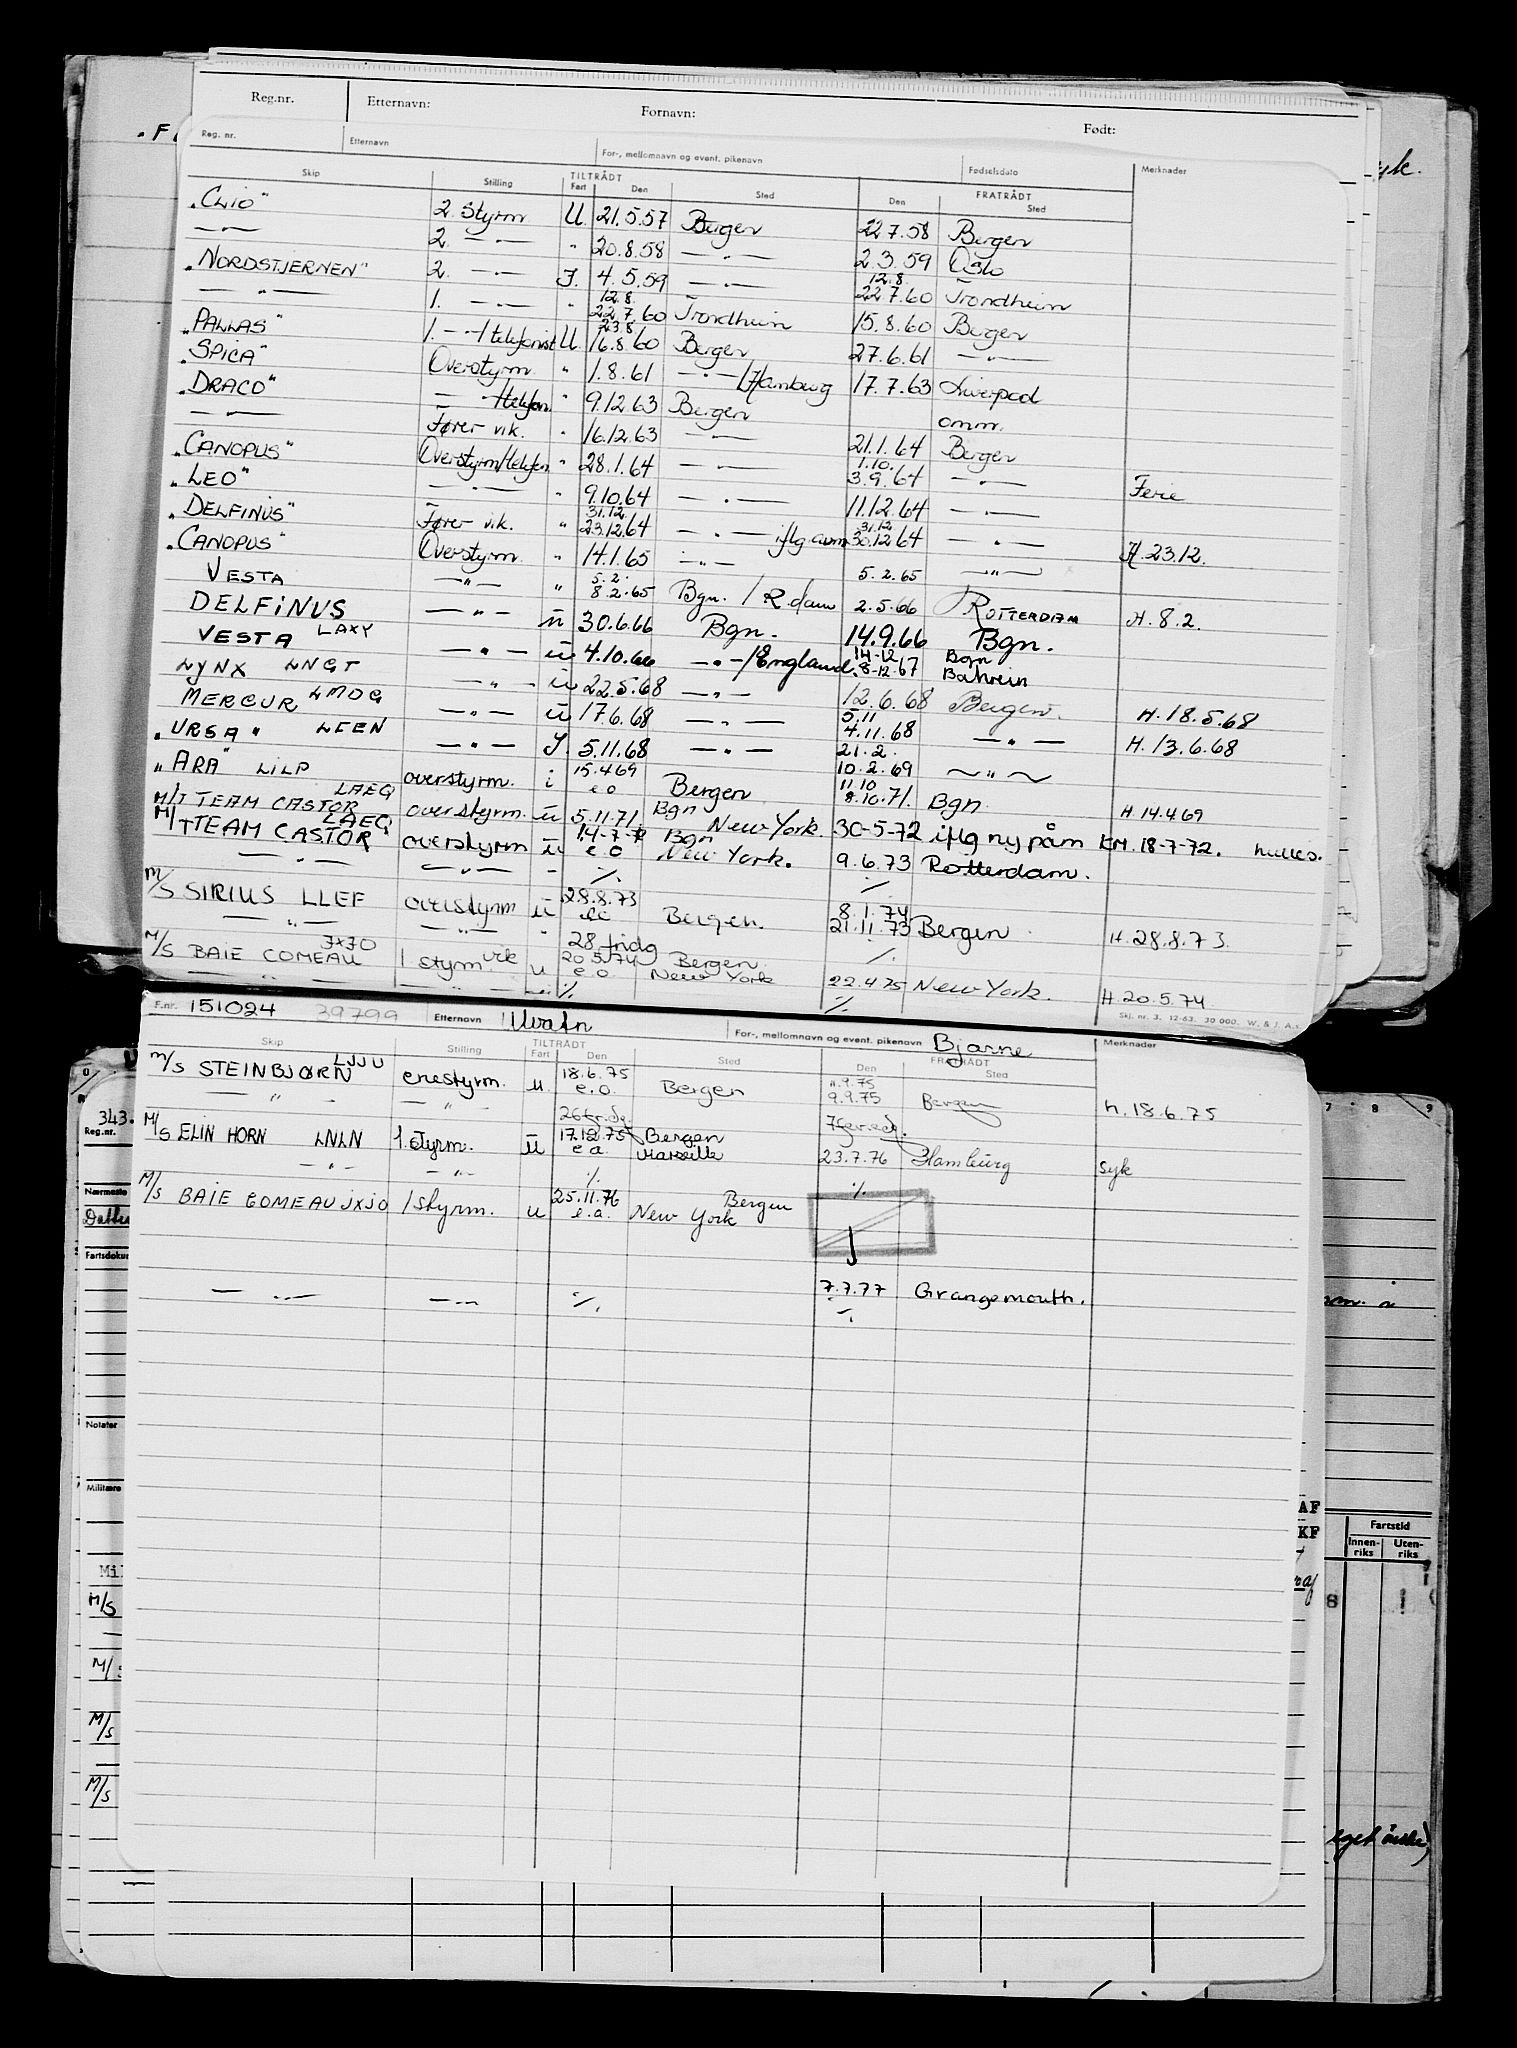 Reg.nr. Etternavn: Fornavn: Født:
Reg. nr. Etternavn For-, mellomnavn og event. pikenavn Fødselsdato Merknader
Skip Stilling TILTRÅDT Fart Den Sted FRATRÅDT Den Sted
"CLIO" 2. Styrm U. 21.5.57 Bergen 22.7.58 Bergen
— " — 2. — " — " 20.8.58 — " — 2.3.59 Oslo
"NORDSTJERNEN" 2. — " — I. 4.5.59 — " — 12.8. 22.7.60 Trondheim
— " — 1. — " — " 12.8. 22.7.60 Trondheim 15.8.60 Bergen
"PALLAS" 1. — " — /telefonist U 23.8. 16.8.60 Bergen 27.6.61 — " —
"SPICA" Overstyrm. " 1.8.61 — " — /Hamburg 17.7.63 Liverpool
"DRACO" — " — /telefon. " 9.12.63 Bergen omm.
— " — Fører vik. " 16.12.63 — " — 21.1.64 Bergen
"CANOPUS" Overstyrm/telefon " 28.1.64 — " — 1.10. 3.9.64 — " — Ferie
"LEO" — " — " 9.10.64 — " — 11.12.64 — " —
"DELFINUS" Fører vik. " 31.12. 23.12.64 — " — iflg. avm 31.12 30.12.64 — " — H. 23.12.
"CANOPUS" Overstyrm. " 14.1.65 — " — 5.2.65 — " —
VESTA — " — " 5.2. 8.2.65 Bgn. / R.dam 2.5.66 ROTTERDAM H. 8.2.
DELFINUS — " — ū 30.6.66 Bgn. 14.9.66 Bgn.
VESTA LAXY — " — ū 4.10.66 — " — /England. 14-12 8-12-67 Bgn Bahrein
LYNX LNGT — " — ū 22.5.68 — " — 12.6.68 Bergen. H. 18.5.68
MERCUR LMOG — " — ū 17.6.68 — " — 5.11 4.11.68 — " — H. 13.6.68
"URSA" LEEN — " — I. 5.11.68 — " — 21.2. 10.2.69 — " —
"ARA" LILP overstyrm. i 15.4.69 e.o Bergen 11.10 8.10.71. Bgn. H 14.4.69
M/T TEAM CASTOR LAEG overstyrm. ū 5.11.71. Bgn New York 30-5-72 iflg ny påm KM. 18-7-72.
M/T TEAM CASTOR LAEG overstyrm ū 14-7-72 e.o Bgn New York. 9.6.73 Rotterdam.
— " — — " — - ./. ./.
M/S SIRIUS LLEF overstyrm ū 28.8.73 e.o Bergen. 8.1.74 21.11.73 Bergen H. 28.8.73.
— " — — " — " 28 fridg ./.
M/S BAIE COMEAU JXJO 1 styrm. vik u 20.5.74 e.o. Bergen New York 22.4.75 New York. H. 20.5.74
— " — — " — ./. ./.
Skj. nr. 3. 12-63. 30 000. W. & J. A.s.
F.nr. 151024 39799 Etternavn Ulvatn For-, mellomnavn og event. pikenavn Bjarne Merknader
Skip Stilling TILTRÅDT Fart Den Sted FRATRÅDT Den Sted
M/S STEINBJØRN LJJU enestyrm. u. 18.6.75 e.o. Bergen 11.9.75 9.9.75 Bergen h. 18.6.75
— " — — " — 26 fr.dg
M/S ELIN HORN LNLN 1. styrm. ū 17.12.75 e.a. Bergen Marseille 23.7.76 Hamburg syk
— " — — " — ./. ./.
M/S BAIE COMEAU JXJO 1 styrm. u 25.11.76 e.a. Bergen New York
— " — — " — ./. 7.7.77 ./. Grangemouth.
343.
Reg.nr.
Nærmeste
Fartsdokum
Notater
Militære
Mil
M/S
M/S
M/S
M/S
7 8 9
AF
KF
Fartstid
Innenriks Utenriks
8
eget ønske)